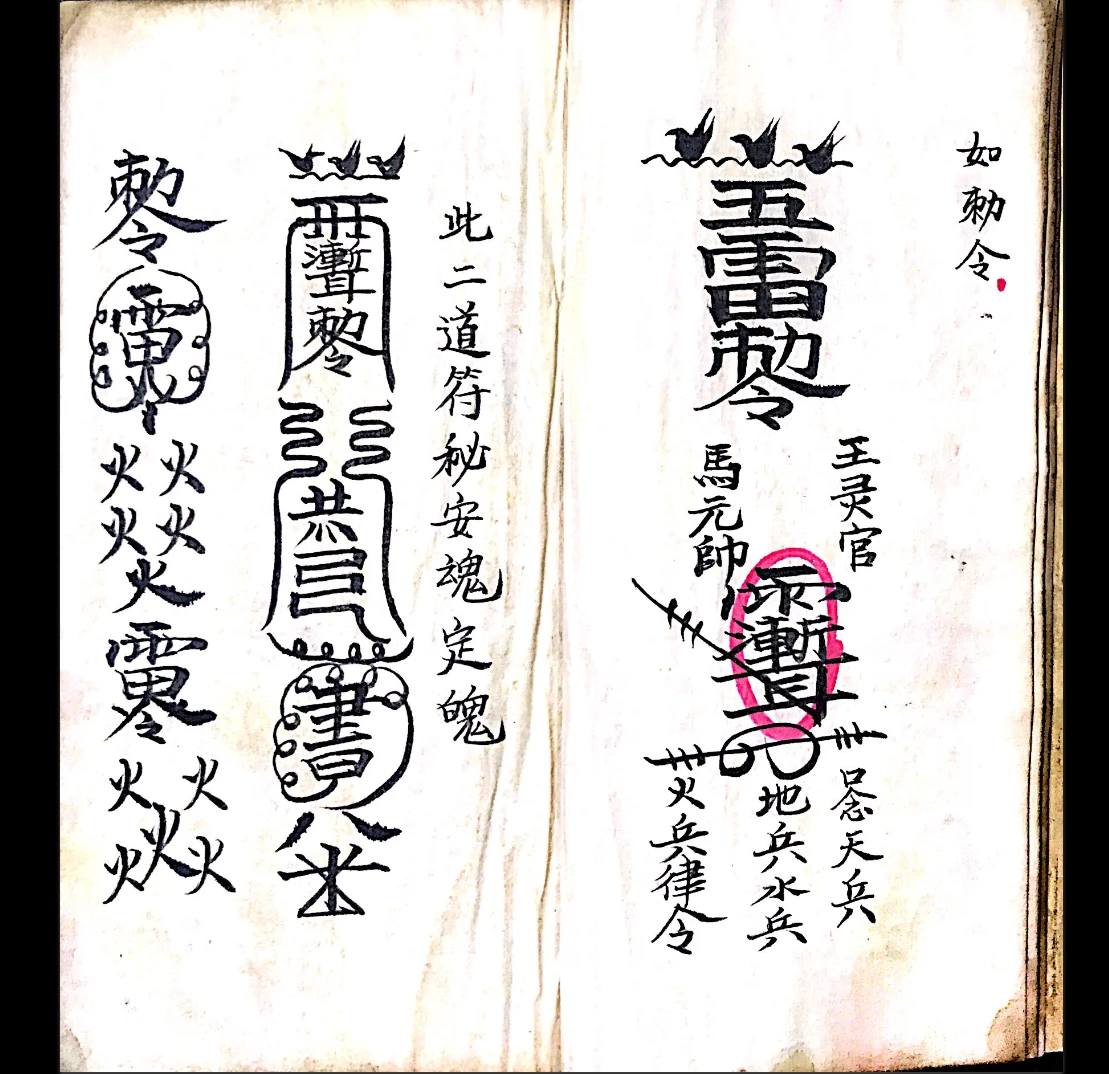 如勅令
五雷勅令
王灵官
馬元帥
雨漸耳
口念天兵
地兵水兵
火兵律令
此二道符秘安魂定魄
漸耳勅令
共
八
勅令
雷火
火火
火火
火
火火
火
火火